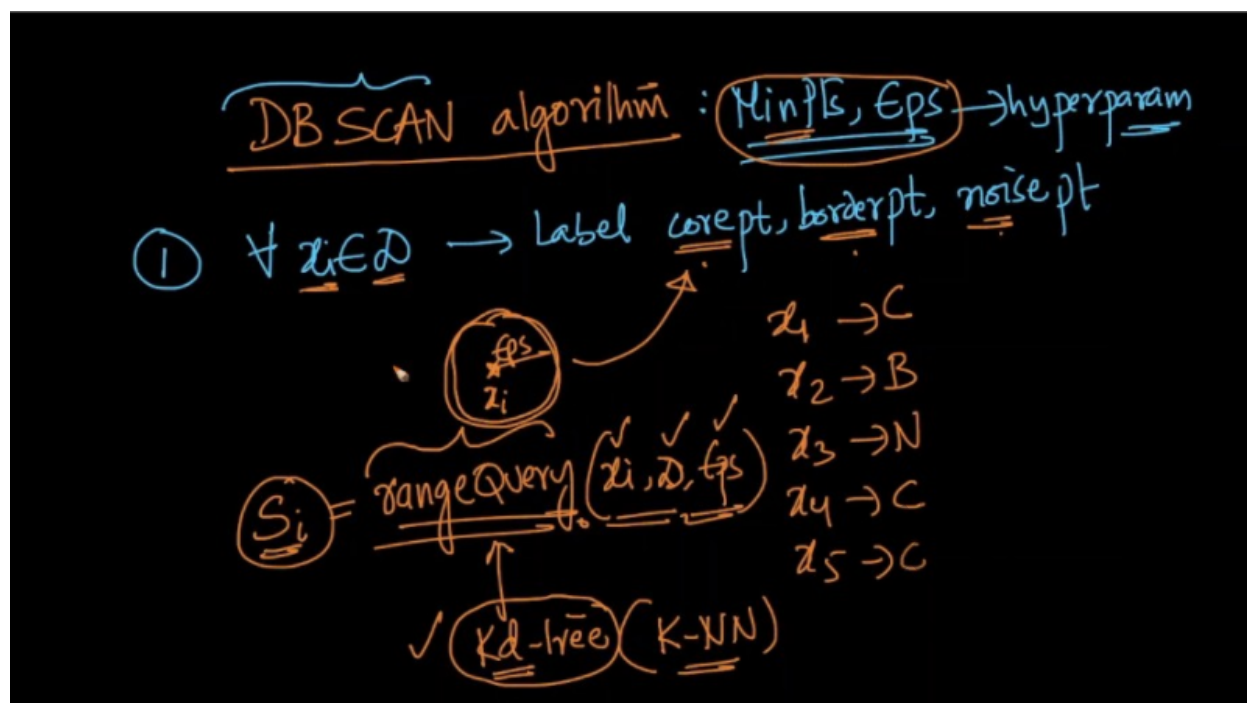 DBSCAN algorithm : MinPts, Eps → hyperparam
① ∀ xi ∈ D → Label corept, borderpt, noise pt
Eps
xi
x1 → C
x2 → B
x3 → N
x4 → C
x5 → C
Si = rangeQuery (xi, D, Eps)
✓ Kd-tree (K-NN)